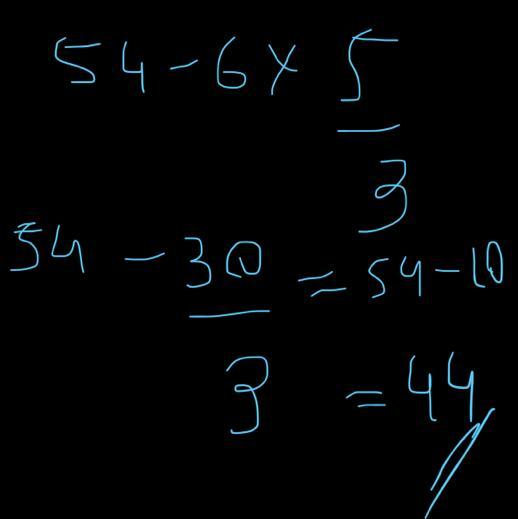 54 - 6 × 5/3
54 - 30/3 = 54 - 10
= 44